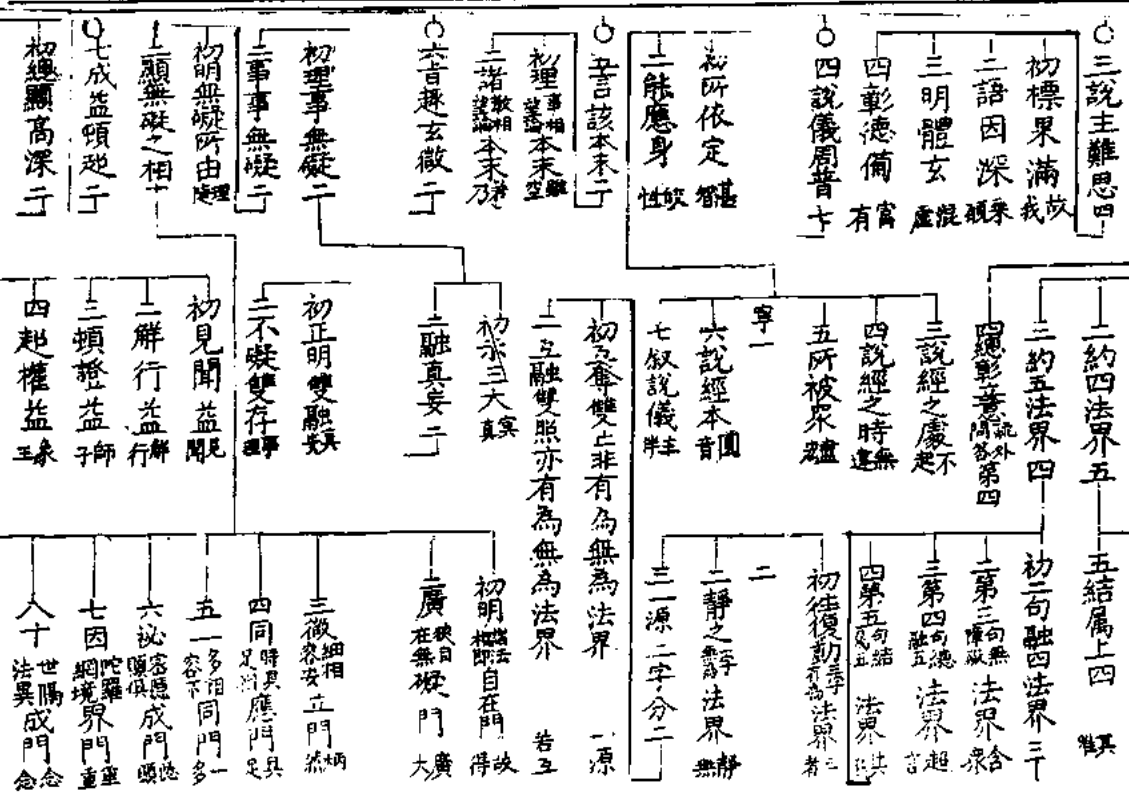 三說主難思四
初標果滿 故我
二語因深 乘願
三明體玄 混虛
四彰德備 富有
四說儀周普七
初所依定 甚智
二能應身 皎性
五言該本末二
初理事相望論本末 雖空
二諸教相望論本末
六旨趣玄微二
初理事無礙二
二事事無礙二
初明無礙所由 理處
二顯無礙之相十
七成益頓超二
初總顯高深二
二約四法界五
三約五法界四
四總彰意 問答第四
三說經之處 不起
四說經之時 無違
五所被眾 盡宏
六說經本 圓音
七叙說儀 主半
寧一
初互奪雙亡非有為無為法界 一源
二互融雙照亦有為無為法界 若互
初示三大 冥真
二融真妄二
初正明雙融 真妄
二不礙雙存 事理
初見聞益 見聞
二解行益 解行
三頓證益 師子
四超權益 象王
五結属上四 其唯
初二句融四法界三
二第三句無障礙法界 含眾
三第四句總融五法界 超言
四第五句結 法界
初往復動三字有為法界 者
二靜之一字無為法界 靜無
二
三一源二字分二
初明諸法相即自在門 故得
二廣狹自在無礙門 廣大
三微細相容安立門 炳然
四同時具足相應門 具足
五一多相容不同門 一多
六祕密隱顯俱成門 隱顯
七因陀羅網境界門 重重
八十世隔法異成門 念念